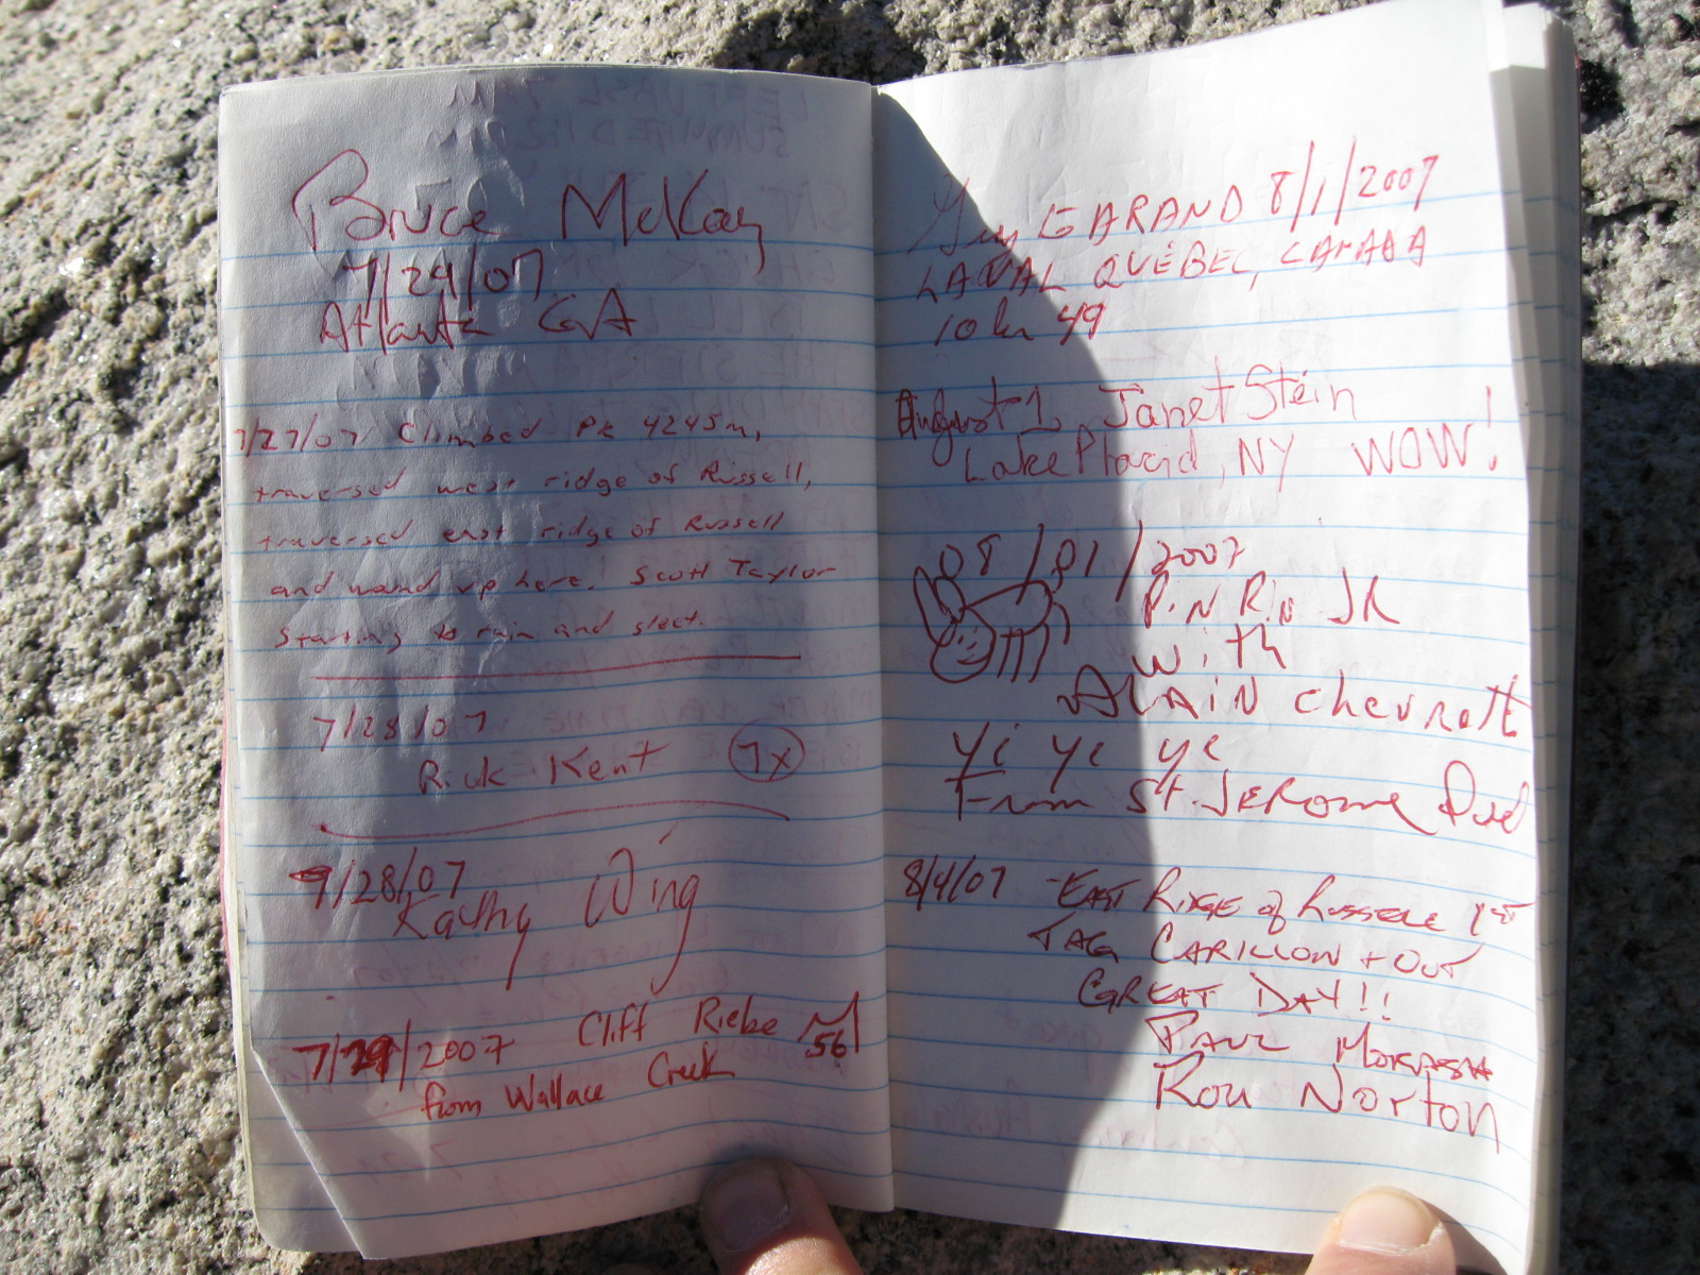 Bruce McKay
7/29/07
Atlanta GA
7/27/07 Climbed PK 4245m,
traversed west ridge of Russell,
traversed east ridge of Russell
and wound up here. Scott Taylor
Starting to rain and sleet.
7/28/07
Rick Kent 7x
7/28/07
Kathy Wing
7/29/2007 Cliff Riebe 56
from Wallace Creek
Guy GARAND 8/1/2007
LAVAL QUÉBEC, CANADA
49
August 1, Janet Stein
Lake Placid, NY WOW!
08/01/2007
PiN RiN JR
with
ALAiN chevrette
yi yi yi
From St. JEROME
8/4/07 - EAST RIDGE of RUSSELL 1ST
TAG CARILLON + OUT
GREAT DAY!!
PAUL
Ron Norton